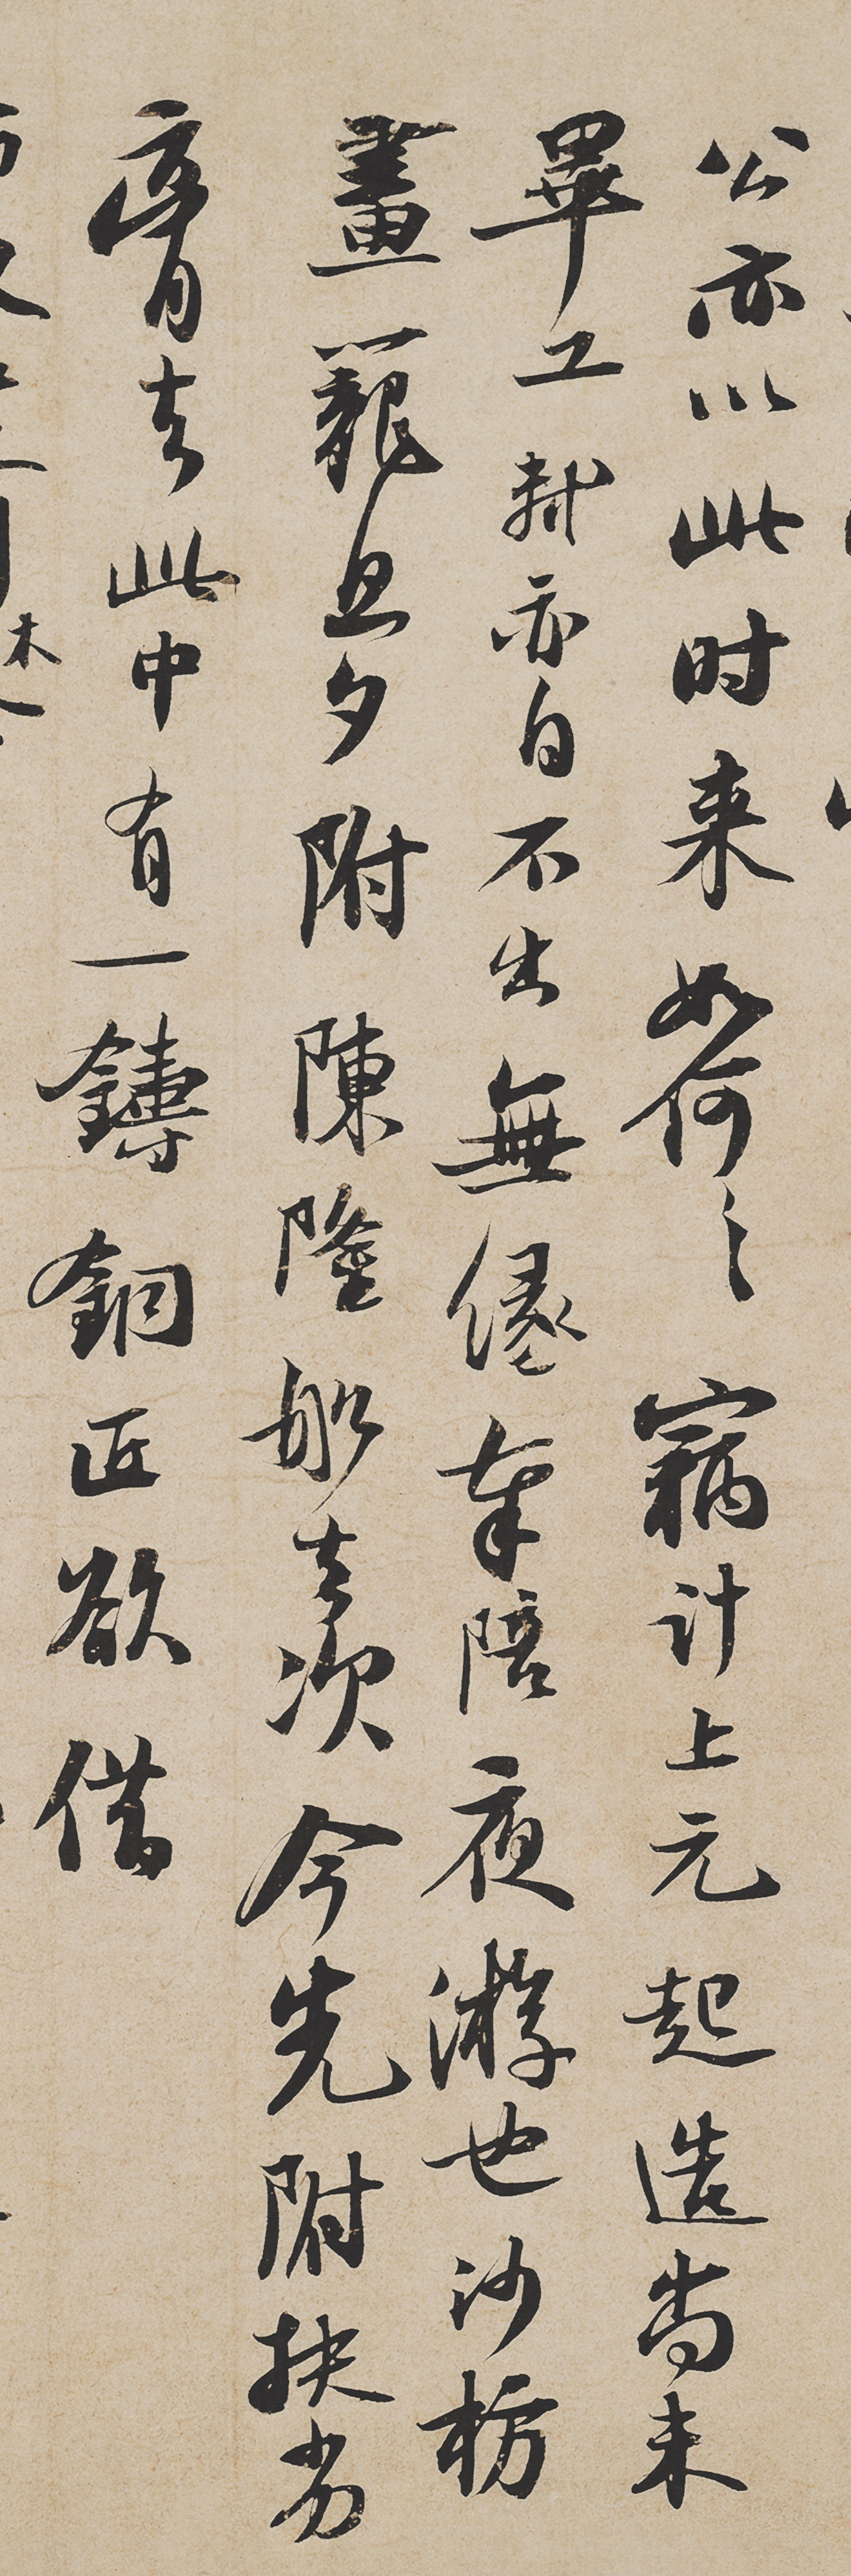 公亦以此时来如何〻窃计上元起造尚未
畢工軾亦自不出無縁奉陪夜游也沙枋
畫籠旦夕附陳隆船去次今先附扶劣
膏去此中有一鑄銅匠欲借